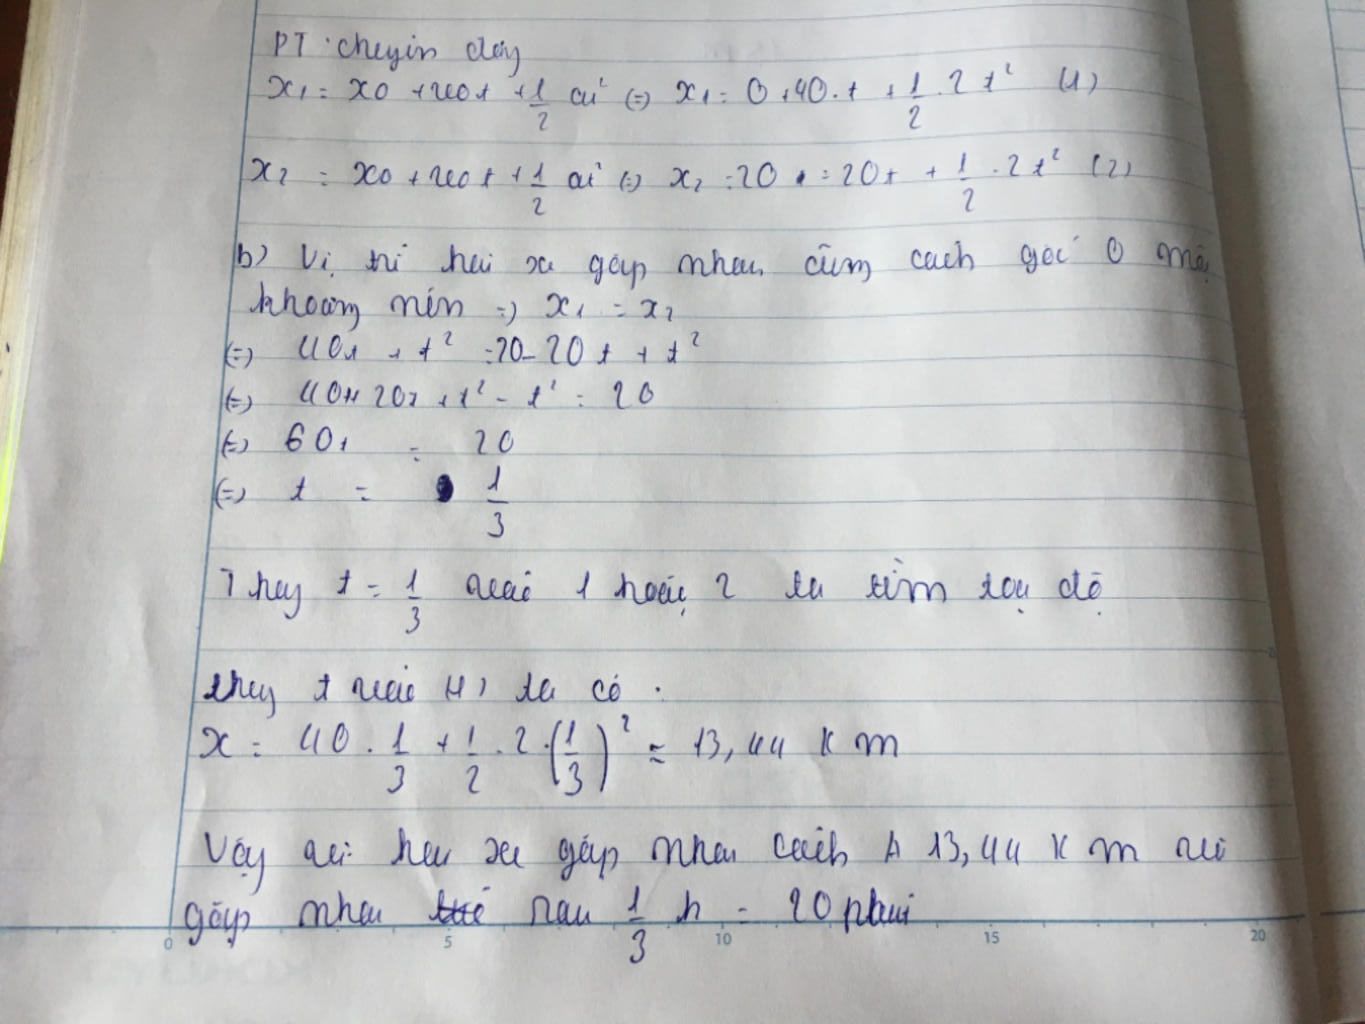 PT chuyển động
x₁ = x0 + v0t + 1/2 at² (=) x₁ = 0 + 40.t + 1/2 . 2 t² (1)
x₂ = x0 + v0t + 1/2 at² (=) x₂ = 20 - 20t + 1/2 . 2 t² (2)
b) Vị trí hai xe gặp nhau cùng cách gốc O một
khoảng nên =) x₁ = x₂
(=) 40t + t² = 20 - 20t + t²
(=) 40t + 20t + t² - t² = 20
(=) 60t = 20
(=) t = 1/3
Thay t = 1/3 vào 1 hoặc 2 ta tìm toạ độ
thay t vào (1) ta có .
x = 40 . 1/3 + 1/2 . 2 . (1/3)² = 13,44 km
Vậy hai xe gặp nhau cách A 13,44 km và
gặp nhau sau 1/3 h = 20 phút
0 5 10 15 20